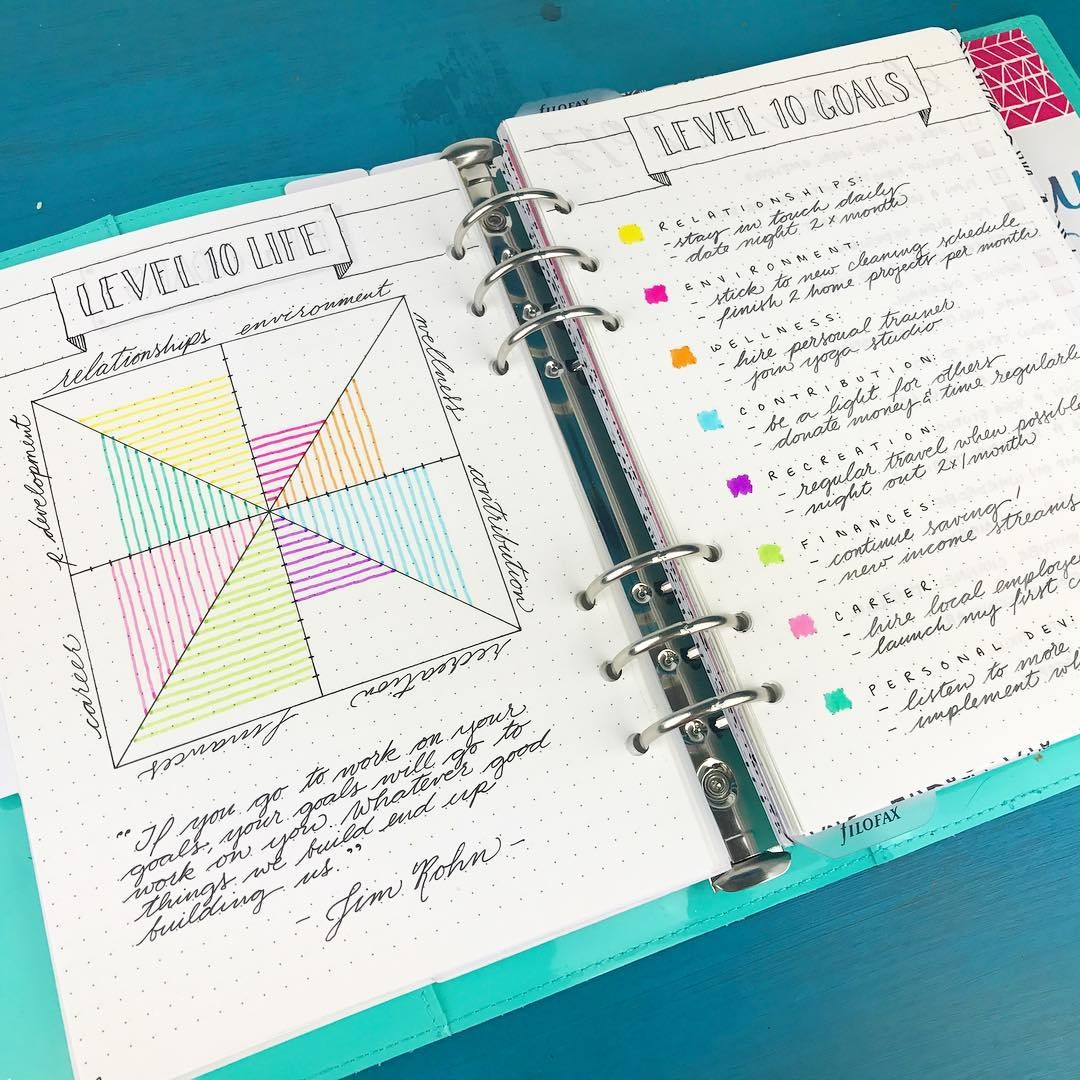 LEVEL 10 LIFE
relationships
environment
wellness
contribution
recreation
finances
career
p. development
"If you go to work on your
goals, your goals will go to
work on you. Whatever good
things we build end up
building us."
- Jim Rohn -
FILOFAX
LEVEL 10 GOALS
RELATIONSHIPS:
- stay in touch daily
- date night 2x month
ENVIRONMENT:
- stick to new cleaning schedule
- finish 2 home projects per month
WELLNESS:
- hire personal trainer
- join yoga studio
CONTRIBUTION:
- be a light for others
- donate money & time regularly
RECREATION:
- regular travel when possible
- night out 2x/month
FINANCES:
- continue saving!
- new income streams
CAREER:
- hire local employe
- launch my first c
PERSONAL DEV:
- listen to more
- implement wh
FILOFAX